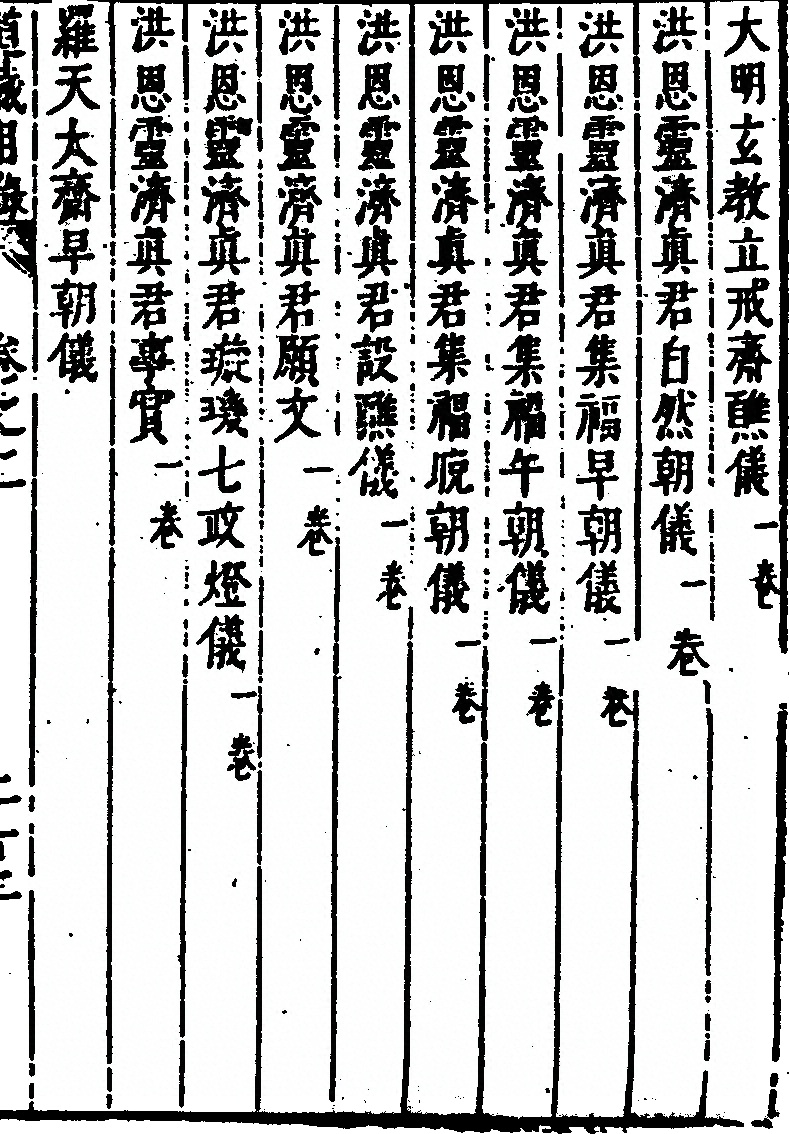 大明玄教立成齋醮儀一卷
洪恩靈濟眞君自然朝儀一卷
洪恩靈濟眞君集福早朝儀一卷
洪恩靈濟眞君集福午朝儀一卷
洪恩靈濟眞君集福晚朝儀一卷
洪恩靈濟眞君設醮儀一卷
洪恩靈濟眞君願文一卷
洪恩靈濟眞君璇璣七政燈儀一卷
洪恩靈濟眞君事實一卷
羅天大齋早朝儀
道藏目錄 卷之二 二十三